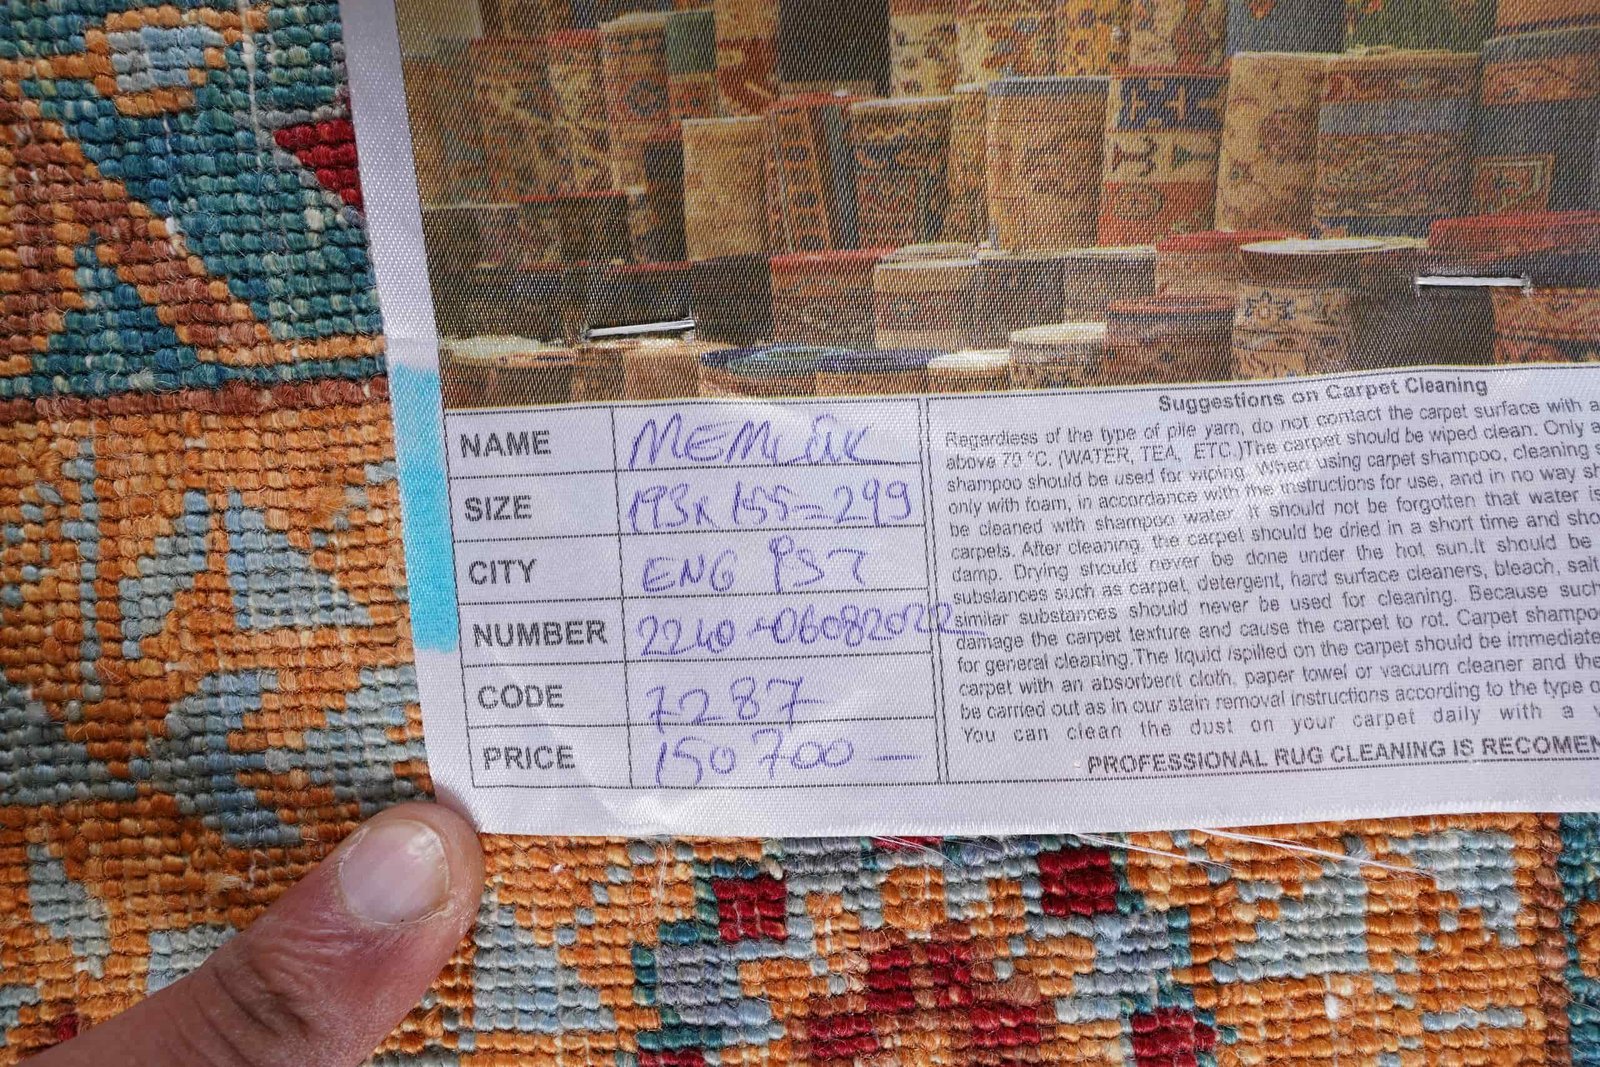 NAME MEMLÜK
SIZE 193x155=299
CITY ENG PST
NUMBER 2240-06082022
CODE 7287
PRICE 150700—
Suggestions on Carpet Cleaning
Regardless of the type of pile yarn, do not contact the carpet surface with a
above 70 °C. (WATER, TEA, ETC.)The carpet should be wiped clean. Only a
shampoo should be used for wiping. When using carpet shampoo, cleaning
only with foam, in accordance with the instructions for use, and in no way sh
be cleaned with shampoo water. It should not be forgotten that water is
carpets. After cleaning, the carpet should be dried in a short time and sho
damp. Drying should never be done under the hot sun.It should be
substances such as carpet, detergent, hard surface cleaners, bleach, salt
similar substances should never be used for cleaning. Because such
damage the carpet texture and cause the carpet to rot. Carpet shampo
for general cleaning.The liquid /spilled on the carpet should be immediate
carpet with an absorbent cloth, paper towel or vacuum cleaner and the
be carried out as in our stain removal instructions according to the type o
You can clean the dust on your carpet daily with a v
PROFESSIONAL RUG CLEANING IS RECOMEN